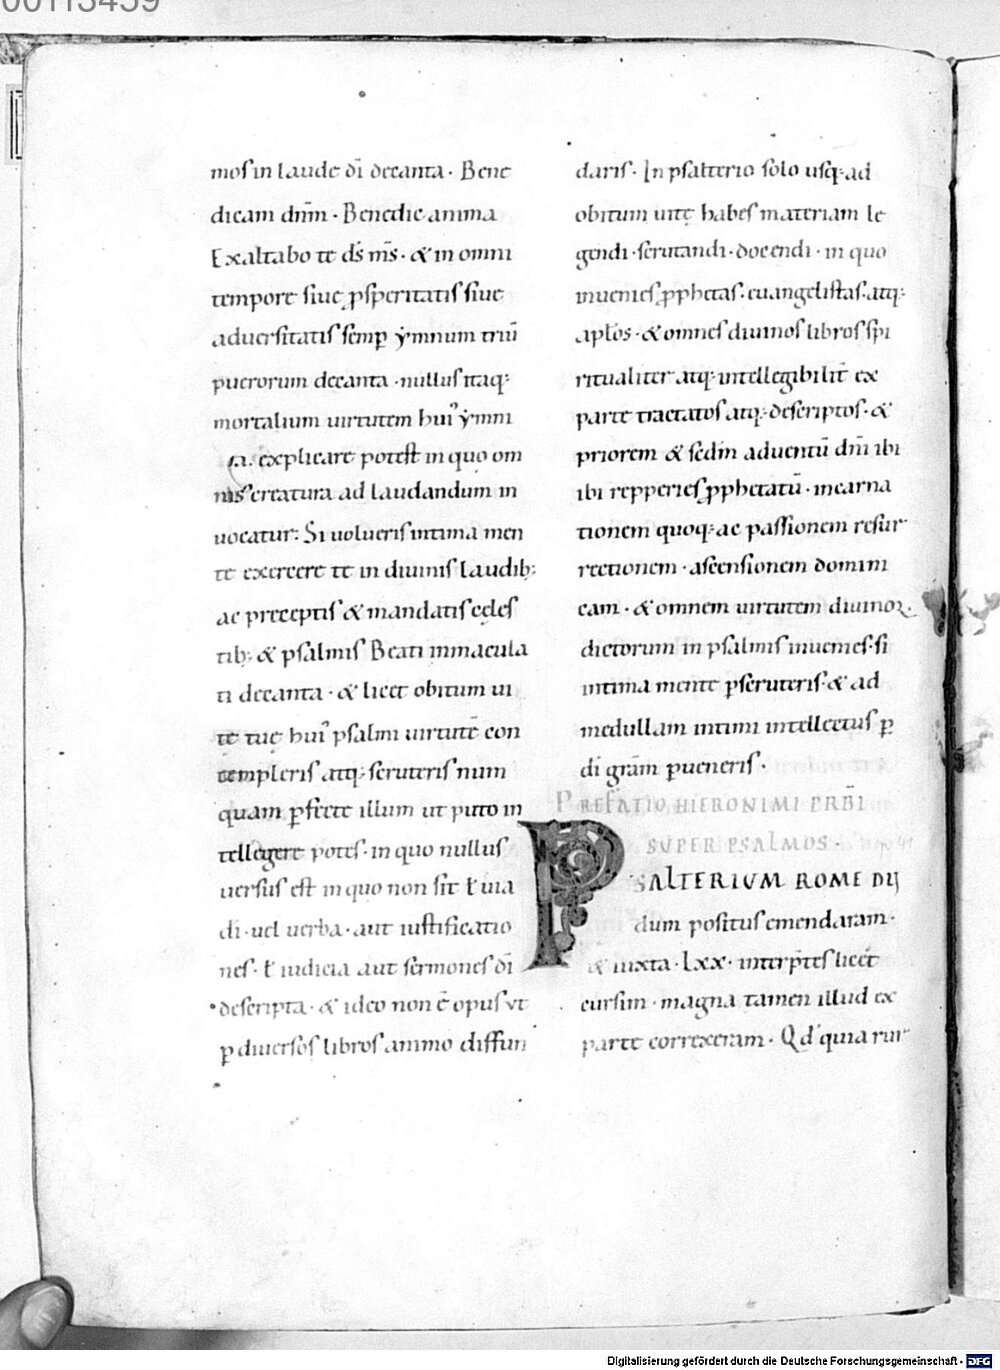 00113459
mos in laude dī decanta · Bene
dicam dnm̄ · Benedic anima
Exaltabo te dş mş · & in omni
tempore siue ꝓsperitatis siue
aduersitatis semꝑ ẏmnum triū
puerorum decanta · nullus itaq;
mortalium uirtutem hui' ẏmni
explicare potest in quo om
nis creatura ad laudandum in
uocatur: Si uolueris intima men
te exercere te in diuinis laudib;
ac preceptis & mandatis celes
tib; & psalmis Beati inmacula
ti decanta · & licet obitum ui
tę tuę hui' psalmi uirtutē con
templeris atq; scruteris num
quam ꝑfecte illum ut puto in
tellegere potes · in quo nullus
uersus est in quo non sit ł uia
di · uel uerba · aut iustificatio
nes · ł iudicia aut sermones dī
descripta · & ideo non ē opus ut
ꝑ diuersos libros animo diffun
daris · In psalterio solo usq; ad
obitum uitę habes materiam le
gendi · scrutandi · docendi · in quo
inuenies ꝓphetas · euangelistas · atq;
aptōs · & omnes diuinos libros spi
ritualiter atq; intellegibilit̄ ex
parte tractatos atq; descriptos · &
priorem & sedm̄ aduentū dnī ibi
ibi repperies ꝓphetatū · incarna
tionem quoq; ac passionem resur
rectionem · ascensionem domini
cam · & omnem uirtutem diuinoꝝ ·
dictorum in psalmis inuenies · si
intima mente ꝑscruteris · & ad
medullam intimi intellectus ꝑ
dī gram̄ ꝑueneris ·
PREFATIO HIERONIMI PRBĪ
SUPER PSALMOS ·
PSALTERIUM ROME DU
dum positus emendaram ·
& iuxta · Lxx · interp̄tes licet
cursim · magna tamen illud ex
parte correxeram · Qd' quia rur
Digitalisierung gefördert durch die Deutsche Forschungsgemeinschaft · DFG